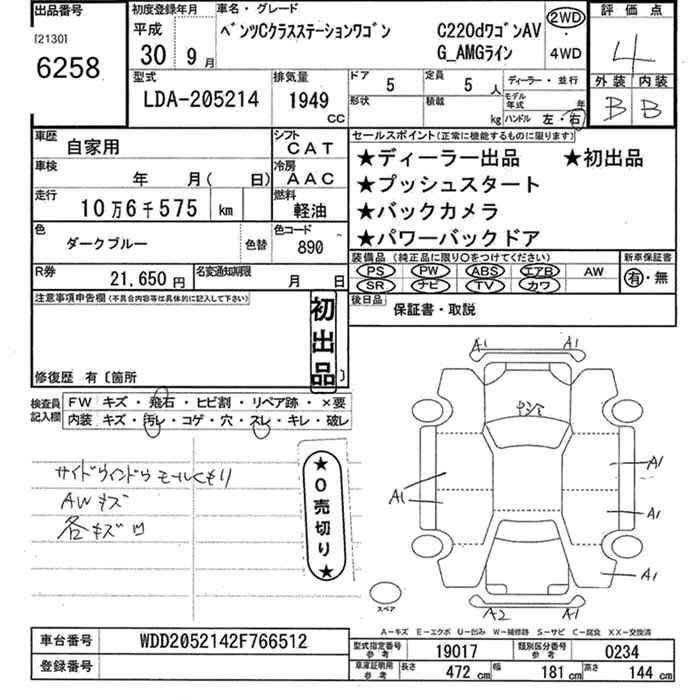 出品番号
[2130]
6258
初度登録年月
平成
30 9月
車名・グレード
ベンツCクラスステーションワゴン C220dワゴンAV
G_AMGライン
2WD
・
4WD
評価点
4
外装 内装
B B
型式
LDA-205214
排気量
1949
CC
ドア 5
定員 5 人
ディーラー・並行
形状
積載 kg
モデル年式 年
ハンドル 左・右
車歴 自家用
シフト CAT
車検 年 月( 日)
冷房 AAC
走行 10万6千575 km
燃料 軽油
色 ダークブルー 色替
色コード 890
R券 21,650円
名変通知期限 月 日
セールスポイント(正常に機能するものに限ります)
★ディーラー出品 ★初出品
★プッシュスタート
★バックカメラ
★パワーバックドア
装備品 (純正品に限り○をつけてください)
PS PW ABS エアB AW
SR ナビ TV カワ
新車保証書
有・無
後日品 保証書・取説
注意事項申告欄(不具合内容等は具体的に記入して下さい)
初出品
修復歴 有〔箇所 〕
検査員記入欄
FW キズ・飛石・ヒビ割・リペア跡・×要
内装 キズ・汚レ・コゲ・穴・スレ・キレ・破レ
サイドウィンドウモールくもり
AWキズ
各キズ凹
★0売切り★
A1 A1
A1
A1
A1
A1
A2 A1
スペア
A-キズ E-エクボ U-凹み W-補修跡 S-サビ C-腐食 XX-交換済
車台番号 WDD2052142F766512
登録番号
型式指定番号 参考 19017
類別区分番号 参考 0234
車庫証明用 参考 長さ 472 cm 幅 181 cm 高さ 144 cm